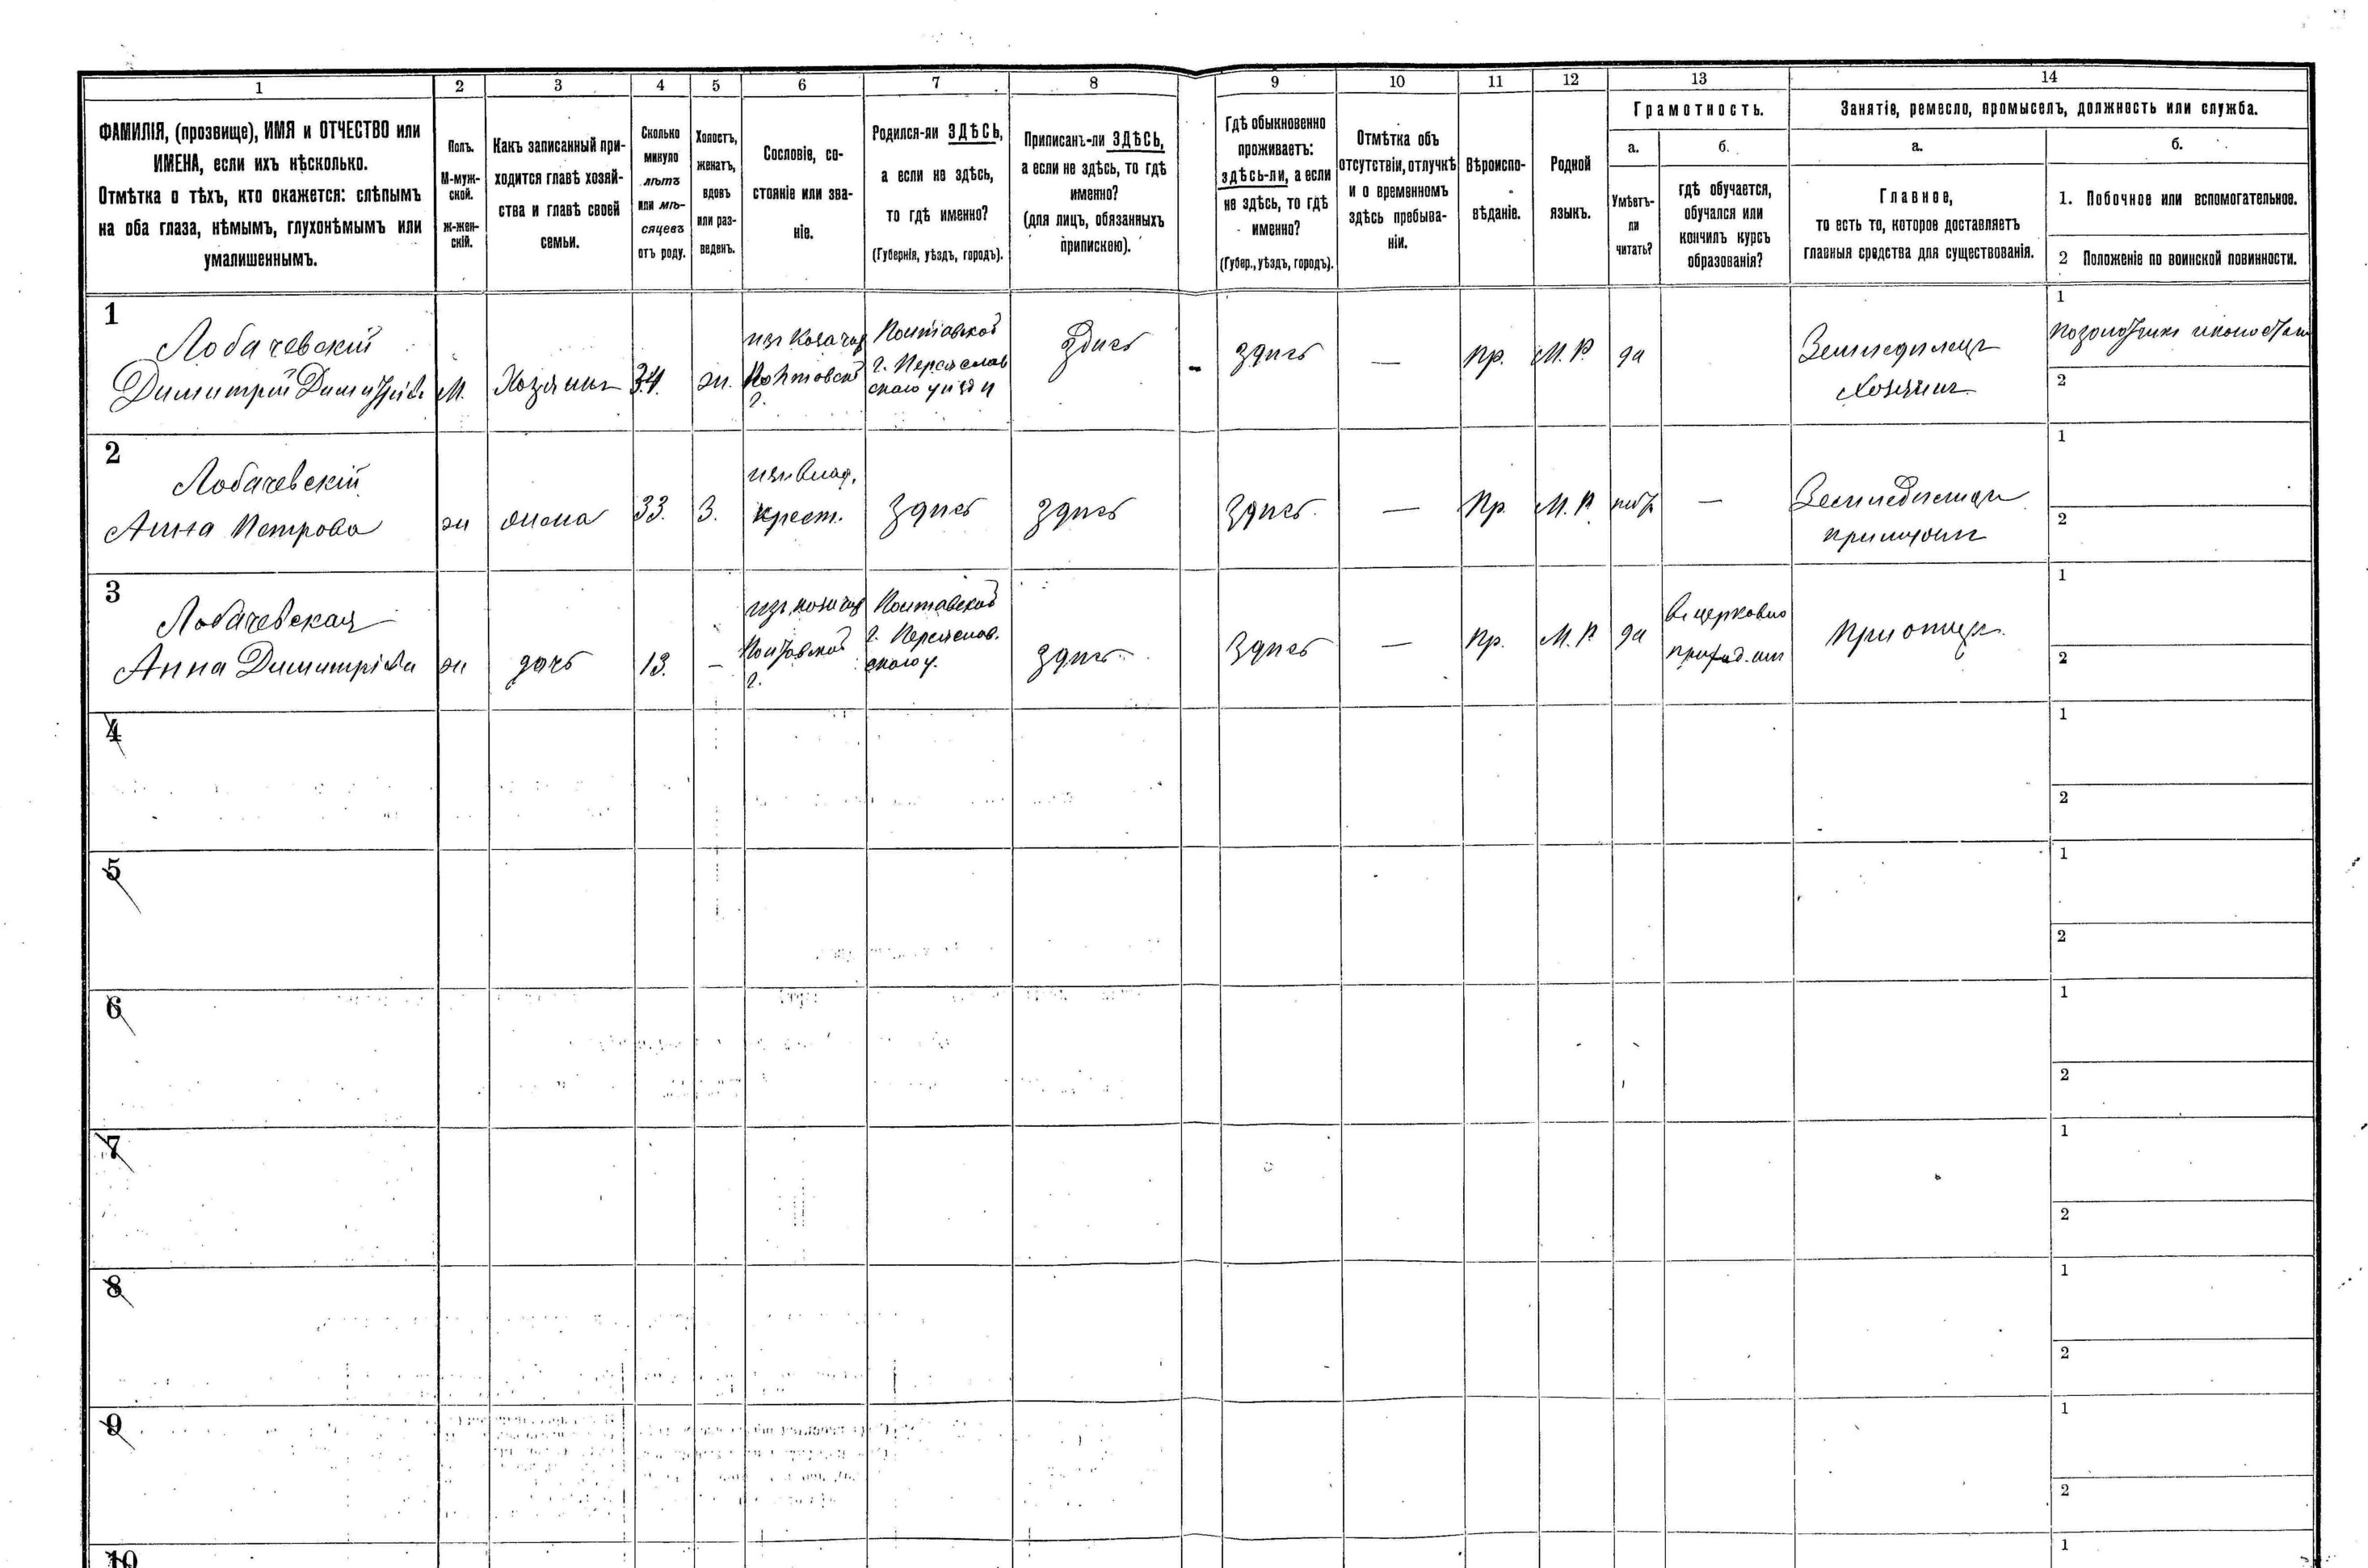 1 2 3 4 5 6 7 8 9 10 11 12 13 14
ФАМИЛІЯ, (прозвище), ИМЯ и ОТЧЕСТВО или
ИМЕНА, если ихъ нѣсколько.
Отмѣтка о тѣхъ, кто окажется: слѣпымъ
на оба глаза, нѣмымъ, глухонѣмымъ или
умалишеннымъ.
Полъ.
М-муж-
ской.
Ж-жен-
скій.
Какъ записанный при-
ходится главѣ хозяй-
ства и главѣ своей
семьи.
Сколько
минуло
лѣтъ
или мѣ-
сяцевъ
отъ роду.
Холостъ,
женатъ,
вдовъ
или раз-
веденъ.
Сословіе, со-
стояніе или зва-
ніе.
Родился-ли ЗДѢСЬ,
а если не здѣсь,
то гдѣ именно?
(Губернія, уѣздъ, городъ).
Приписанъ-ли ЗДѢСЬ,
а если не здѣсь, то гдѣ
именно?
(для лицъ, обязанныхъ
припискею).
Гдѣ обыкновенно
проживаетъ:
здѣсь-ли, а если
не здѣсь, то гдѣ
именно?
(Губер., уѣздъ, городъ).
Отмѣтка объ
отсутствіи, отлучкѣ
и о временномъ
здѣсь пребыва-
ніи.
Вѣроиспо-
вѣданіе.
Родной
языкъ.
Грамотность.
а.
Умѣетъ-
ли
читать?
б.
гдѣ обучается,
обучался или
кончилъ курсъ
образованія?
Занятіе, ремесло, промыселъ, должность или служба.
а.
Главное,
то есть то, которое доставляетъ
главныя средства для существованія.
б.
1. Побочное или вспомогательное.
2 Положеніе по воинской повинности.
1
Лобачевскій
Димитрій Димитріевъ
М.
Хозяинъ
34.
ж.
изъ Козачая
Полтавской
г.
Полтавской
г. Переяслав
ского уѣзда
Здѣсь
-
здѣсь
—
пр.
М. Р.
да
Земледѣлецъ
хозяинъ
1
позолотчикъ иконостас
2
2
Лобачевскій
Анна Петрова
ж
жена
33.
З.
изъ влад.
крест.
здѣсь
здѣсь
здѣсь
—
пр.
М. Р.
нѣтъ
—
Земледѣлица
при мужѣ
1
2
3
Лобачевская
Анна Димитріева
ж
дочь
13.
—
изъ козачая
Полтавской
г.
Полтавской
г. Переяслав.
ского у.
здѣсь
здѣсь
—
пр.
М. Р.
да
въ церковно
приход. шк
при отцѣ.
1
2
4
1
2
5
1
2
6
1
2
7
1
2
8
1
2
9
1
2
10
1